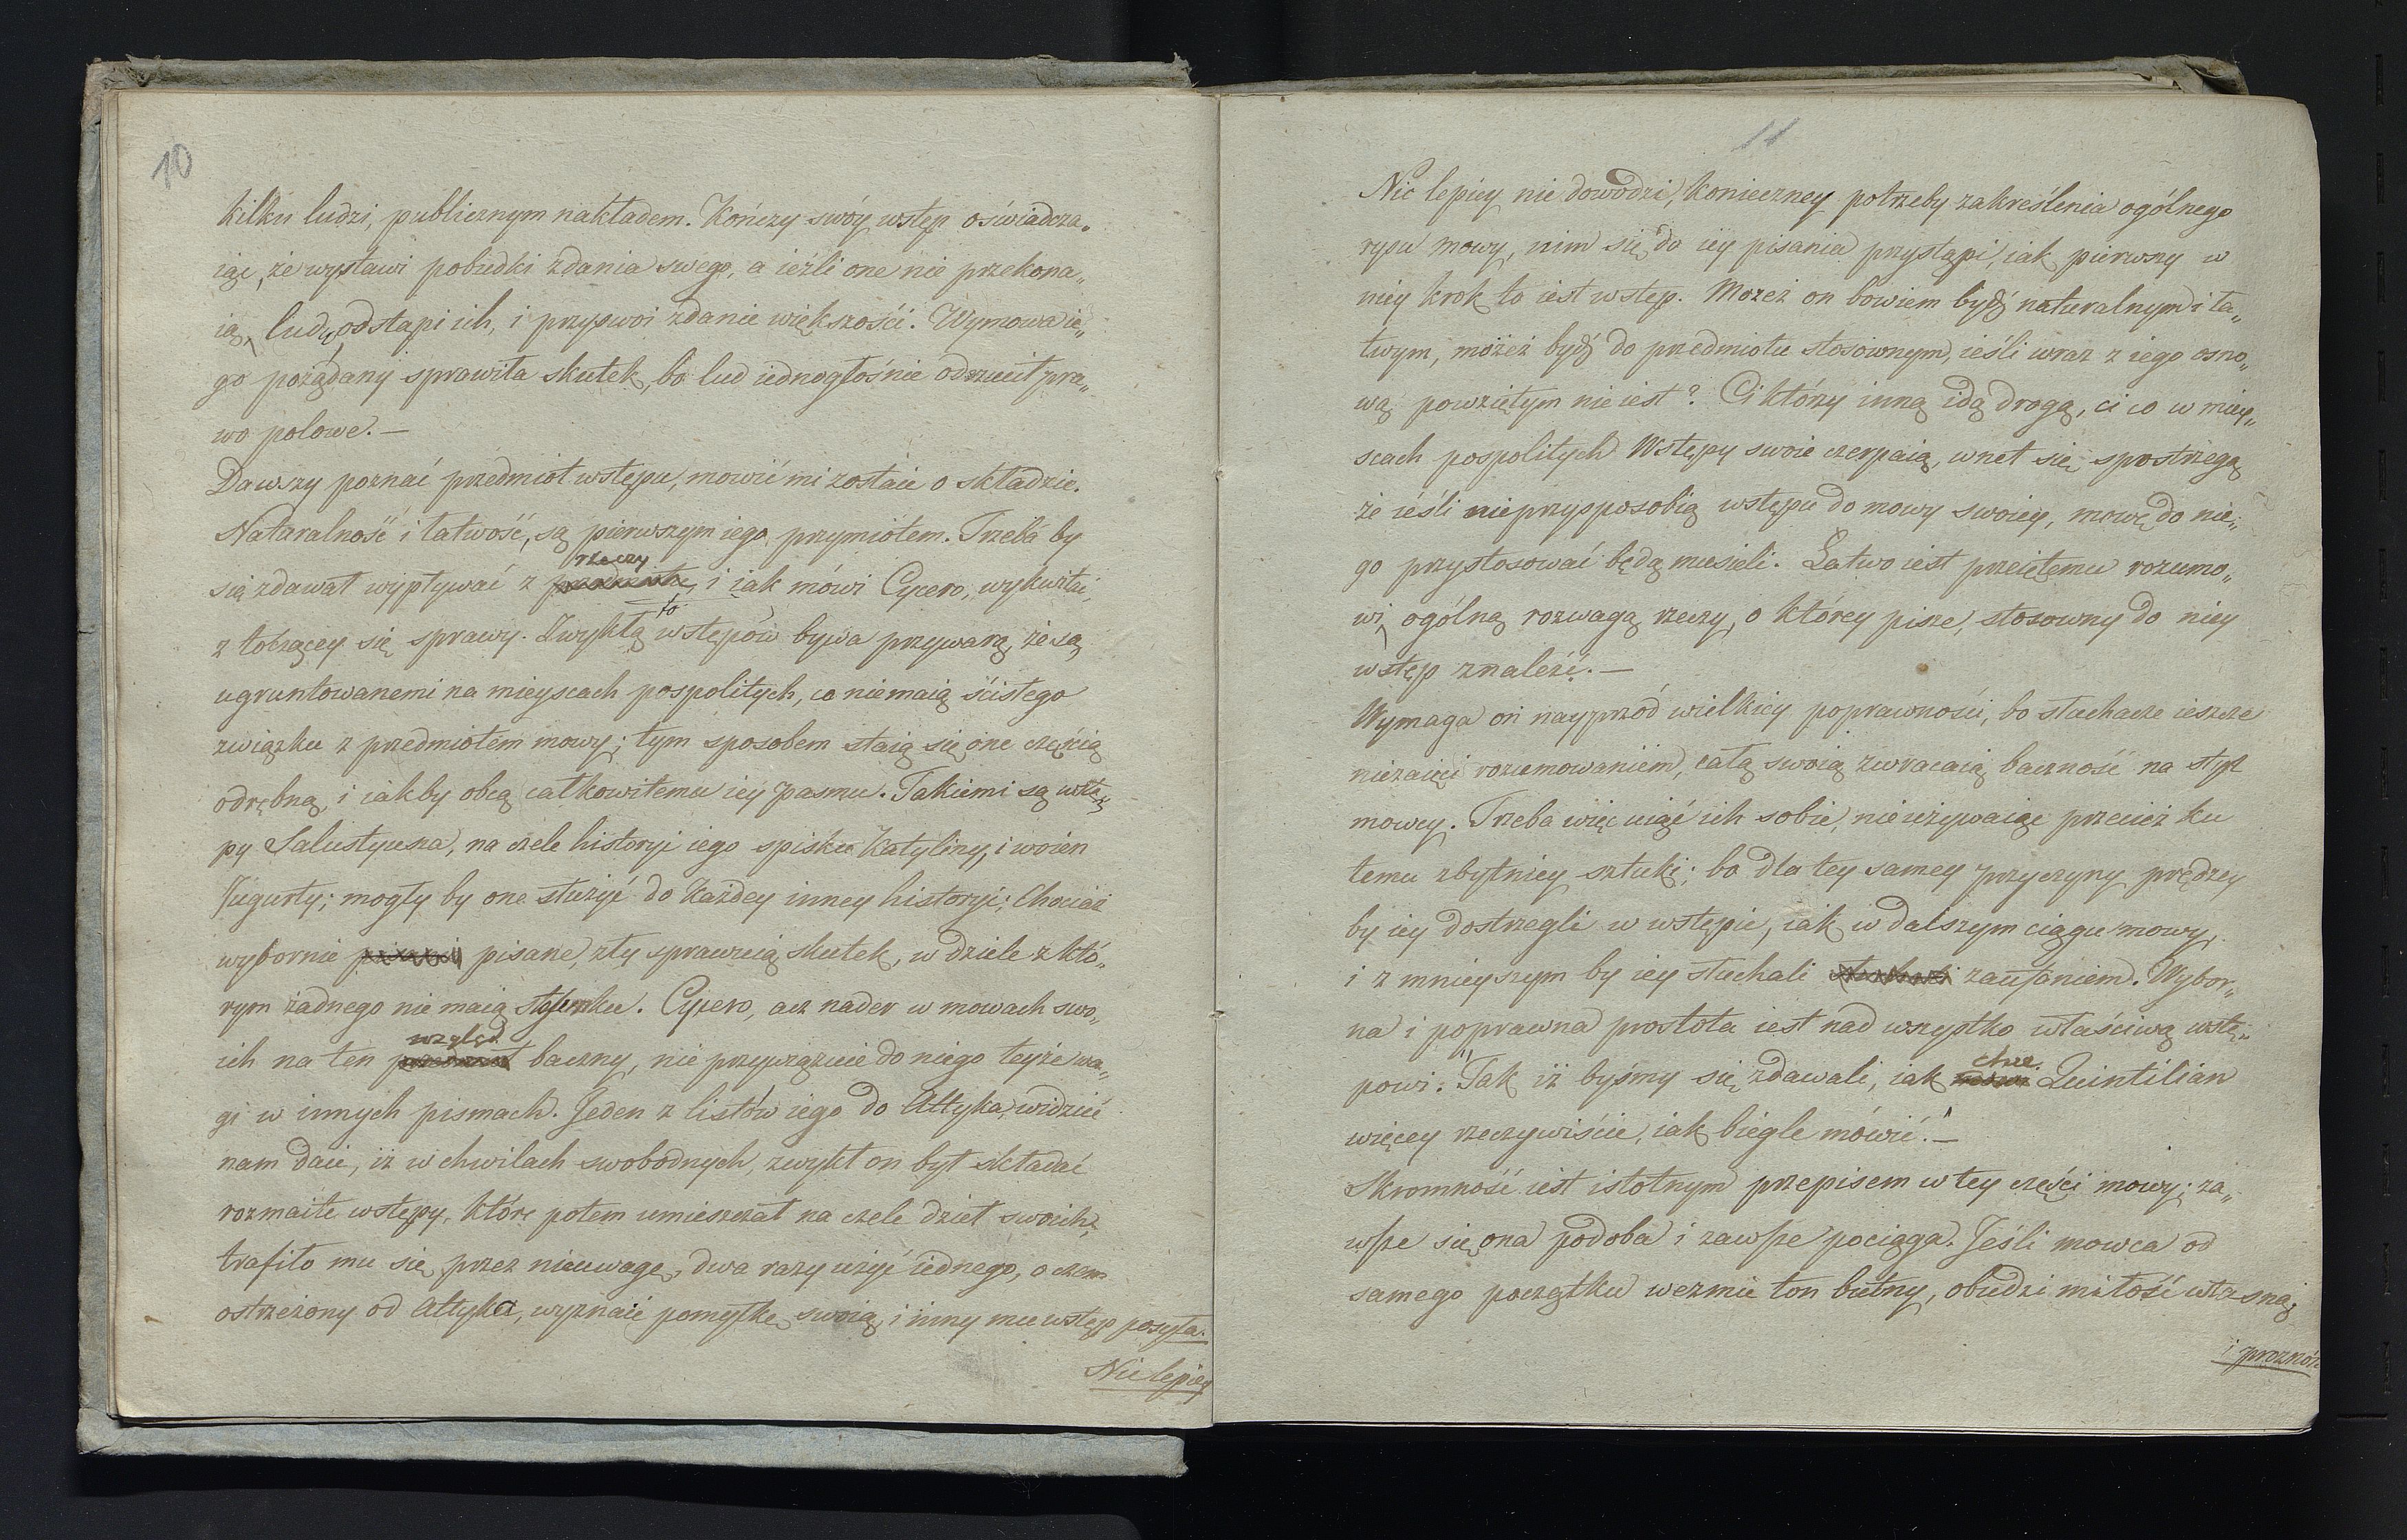 10
kilku ludzi, publicznym nakładem. Kończy swóy wstęp oświadcza„
iąc, że wystawi pobudki zdania swego, a ieźli one nie przekona„
ią, ludu, odstąpi ich, i przyswoi zdanie większości. Wymowa ie„
go pożądany sprawiła skutek, bo lud iednogłośnie odrzucił pra„
wo polowe. —
Dawszy poznać przedmiot wstępu, mowić mi zostaie o składzie.
Naturalność i łatwość, są pierwszym iego przymiotem. Trzeba by
rzeczy
się zdawał wypływać z przedmiotu, i iak mówi Cycero, wykwitać,
to
z toczącey się sprawy. Zwykłą wstępów bywa przywarą, że są
ugruntowanemi na mieyscach pospolitych, co niemaią ścisłego
związku z przedmiotem mowy; tym sposobem staią się one częścią
odrębną, i iakby obcą całkowitemu iey pasmu. Takiemi są wstę„
py Salustyusza, na czele historyi iego spisku Katyliny, i woien
Jugurty; mogły by one służyć do każdey inney historyi; Chociaż
wybornie pisane, zły sprawuią skutek, w dziele z któ„
rym żadnego nie maią stosunku. Cycero, acz nader w mowach swo„
wzgląd
ich na ten przedmiot baczny, nie przywiązuie do niego teyże wa„
gi w innych pismach. Jeden z listów iego do Attyka, widzieć
nam daie, iż w chwilach swobodnych, zwykł on był składać
rozmaite wstępy, które potem umieszczał na czele dzieł swoich;
trafiło mu się przez nieuwagę, dwa razy użyć iednego, o czem
ostrzeżony od Attyka, wyznaie pomyłkę swoią, i inny mu wstęp posyła.
Nic lepiey
11
Nic lepiey nie dowodzi, konieczney potrzeby zakreślenia ogólnego
rysu mowy, nim się do iey pisania przystąpi, iak pierwszy w
niey krok to iest wstęp. Możeż on bowiem bydź naturalnym i ła„
twym, możeż bydź do przedmiotu stosownym, ieśli wraz z iego osno„
wą powziętym nie iest? Ci którzy inną idą drogą, ci co w miey„
scach pospolitych Wstępy swoie czerpaią, wnet się spostrzegą
że ieśli nieprzysposobią wstępu do mowy swoiey, mowę do nie„
go przystosować będą musieli. Łatwo iest przeiętemu rozumo„
wi, ogólną rozwagą rzeczy, o którey pisze, stosowny do niey
wstęp znaleźć. —
Wymaga on nayprzód wielkiey poprawności, bo słuchacze ieszcze
niezaięci rozumowaniem, całą swoią zwracaią baczność na styl
mowcy. Trzeba więc uiąć ich sobie, nieużywaiąc przecież ku
temu zbytniey sztuki; bo dla tey samey przyczyny prędzey
by iey dostrzegli w wstępie, iak w dalszym ciągu mowy,
i z mnieyszym by iey słuchali słuchali zaufaniem. Wybor„
na i poprawna prostota iest nad wszystko właściwą wstę„
chce
powi: "Tak iż byśmy się zdawali, iak mówi Quintilian
więcey rzeczywiście, iak biegle mówić." —
Skromność iest istotnym przepisem w tey części mowy; za„
wsze się ona podoba i zawsze pociąga. Jeśli mowca od
samego początku wezmie ton butny, obudzi miłość własną
i prozność